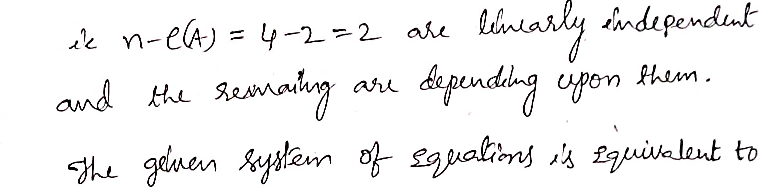 ie n-ρ(A) = 4-2=2 are linearly independent
and the remaing are depending upon them.
The given system of equations is equivalent to